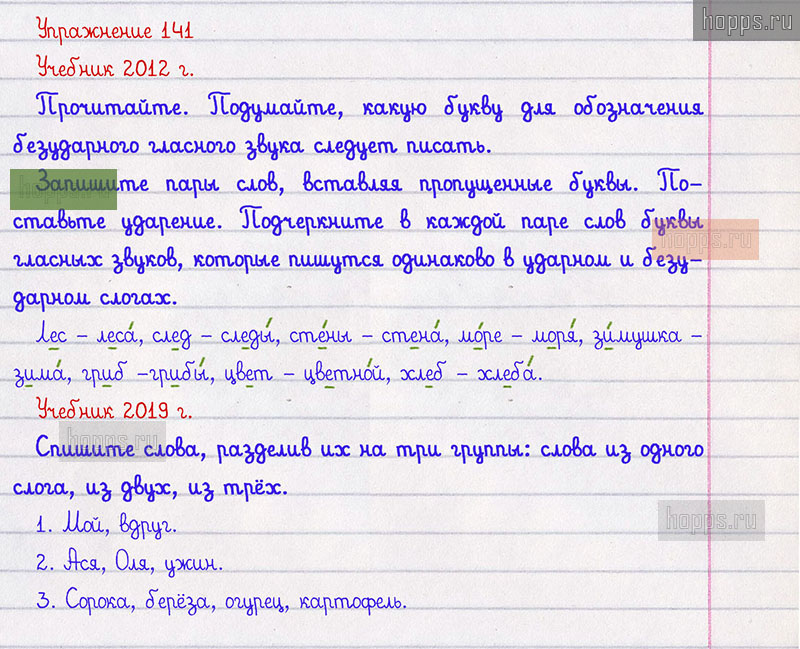 hopps.ru
Упражнение 141
Учебник 2012 г.
Прочитайте. Подумайте, какую букву для обозначения
безударного гласного звука следует писать.
Запишите пары слов, вставляя пропущенные буквы. По-
hopps.ru
ставьте ударение. Подчеркните в каждой паре слов буквы
hopps.ru
гласных звуков, которые пишутся одинаково в ударном и безу-
дарном слогах.
Лес – леса́, след – следы́, сте́ны – стена́, мо́ре – моря́, зи́мушка –
зима́, гриб –грибы́, цвет – цветно́й, хлеб – хлеба́.
Учебник 2019 г.
hopps.ru
Спишите слова, разделив их на три группы: слова из одного
слога, из двух, из трёх.
hopps.ru
1. Мой, вдруг.
2. Ася, Оля, ужин.
3. Сорока, берёза, огурец, картофель.